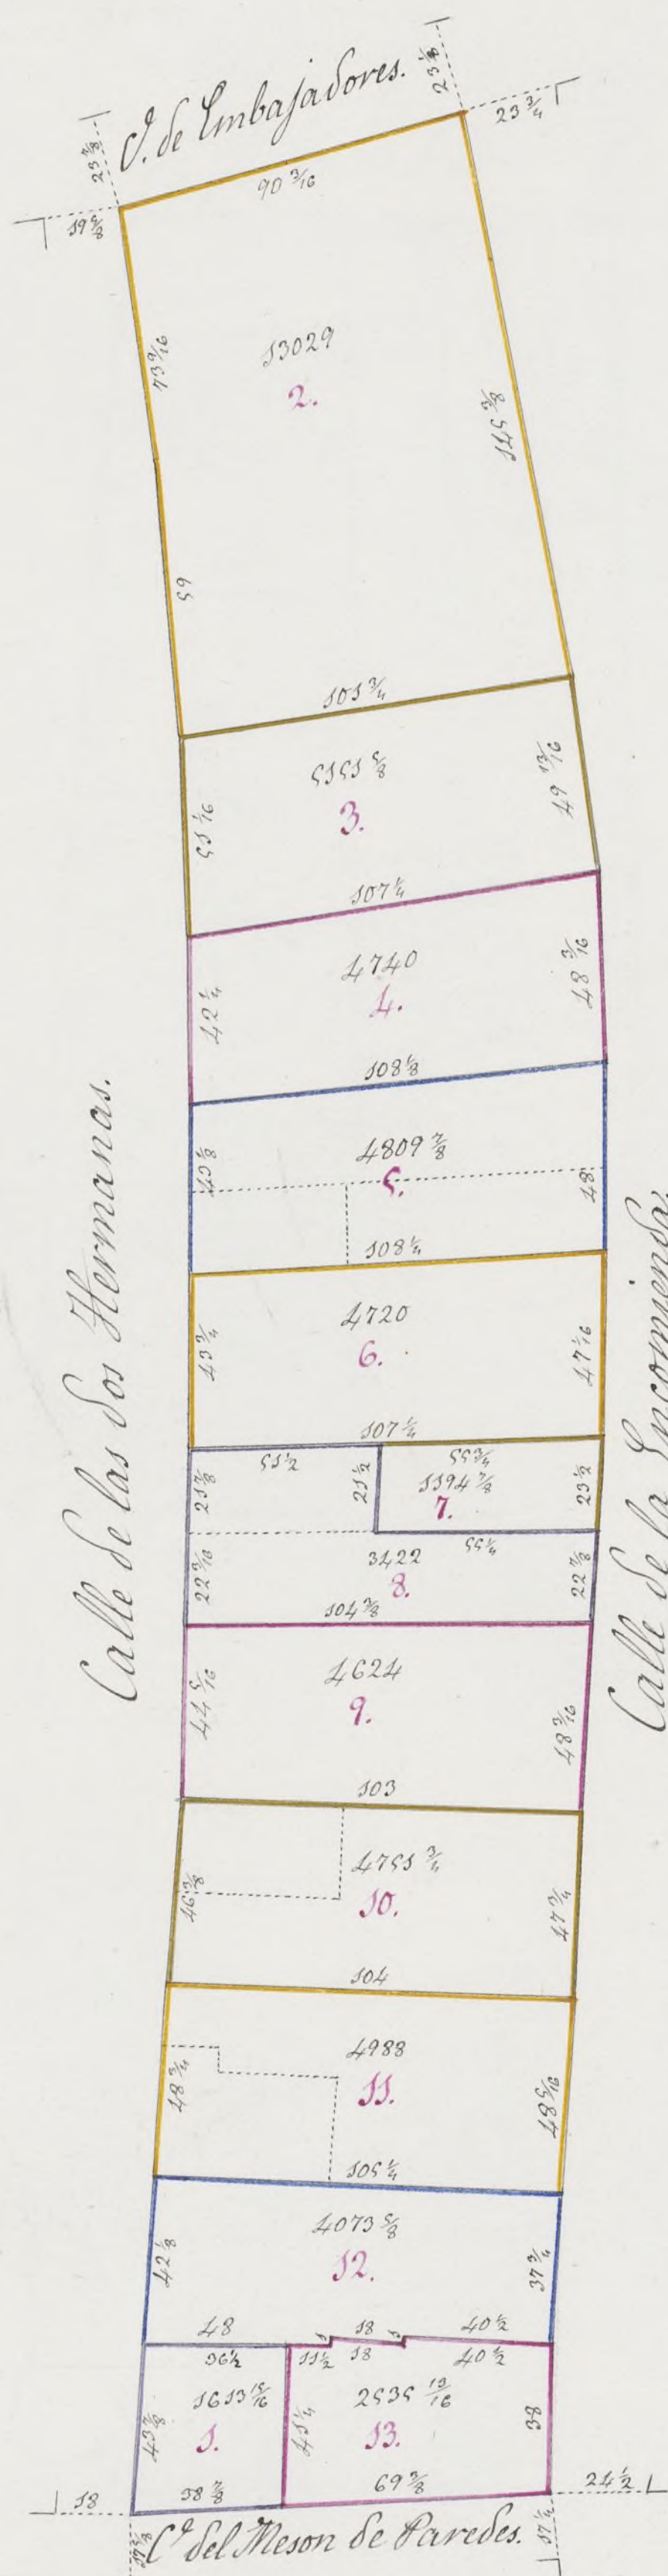 C. de Embajadores.
23 7/8
23 1/8
23 3/4
19 5/8
90 3/16
73 9/16
13029
2.
145 3/8
59
101 3/4
5151 5/8
3.
51 1/16
49 13/16
107 1/4
4740
4.
42 1/4
48 3/16
108 1/8
4809 7/8
5.
43 1/8
48
108 1/4
4720
6.
43 3/4
47 1/16
107 1/4
51 1/2
55 3/4
21 7/8
21 1/2
1194 7/8
7.
23 1/2
55 1/4
3422
8.
22 3/16
22 7/8
104 3/8
4624
9.
44 5/16
48 3/16
103
4751 3/4
10.
46 3/8
47 3/4
104
4988
11.
48 3/4
48 5/16
105 1/4
4073 5/8
12.
42 1/8
37 3/4
48
1
18
1
40 1/2
36 1/2
11 1/2
18
40 1/2
1613 15/16
1.
43 7/8
41 1/4
2535 13/16
13.
38
38 7/8
69 3/8
18
24 1/2
17 5/8
17 1/4
C.ª del Meson de Paredes.
Calle de las dos Hermanas.
Calle de la Encomienda.